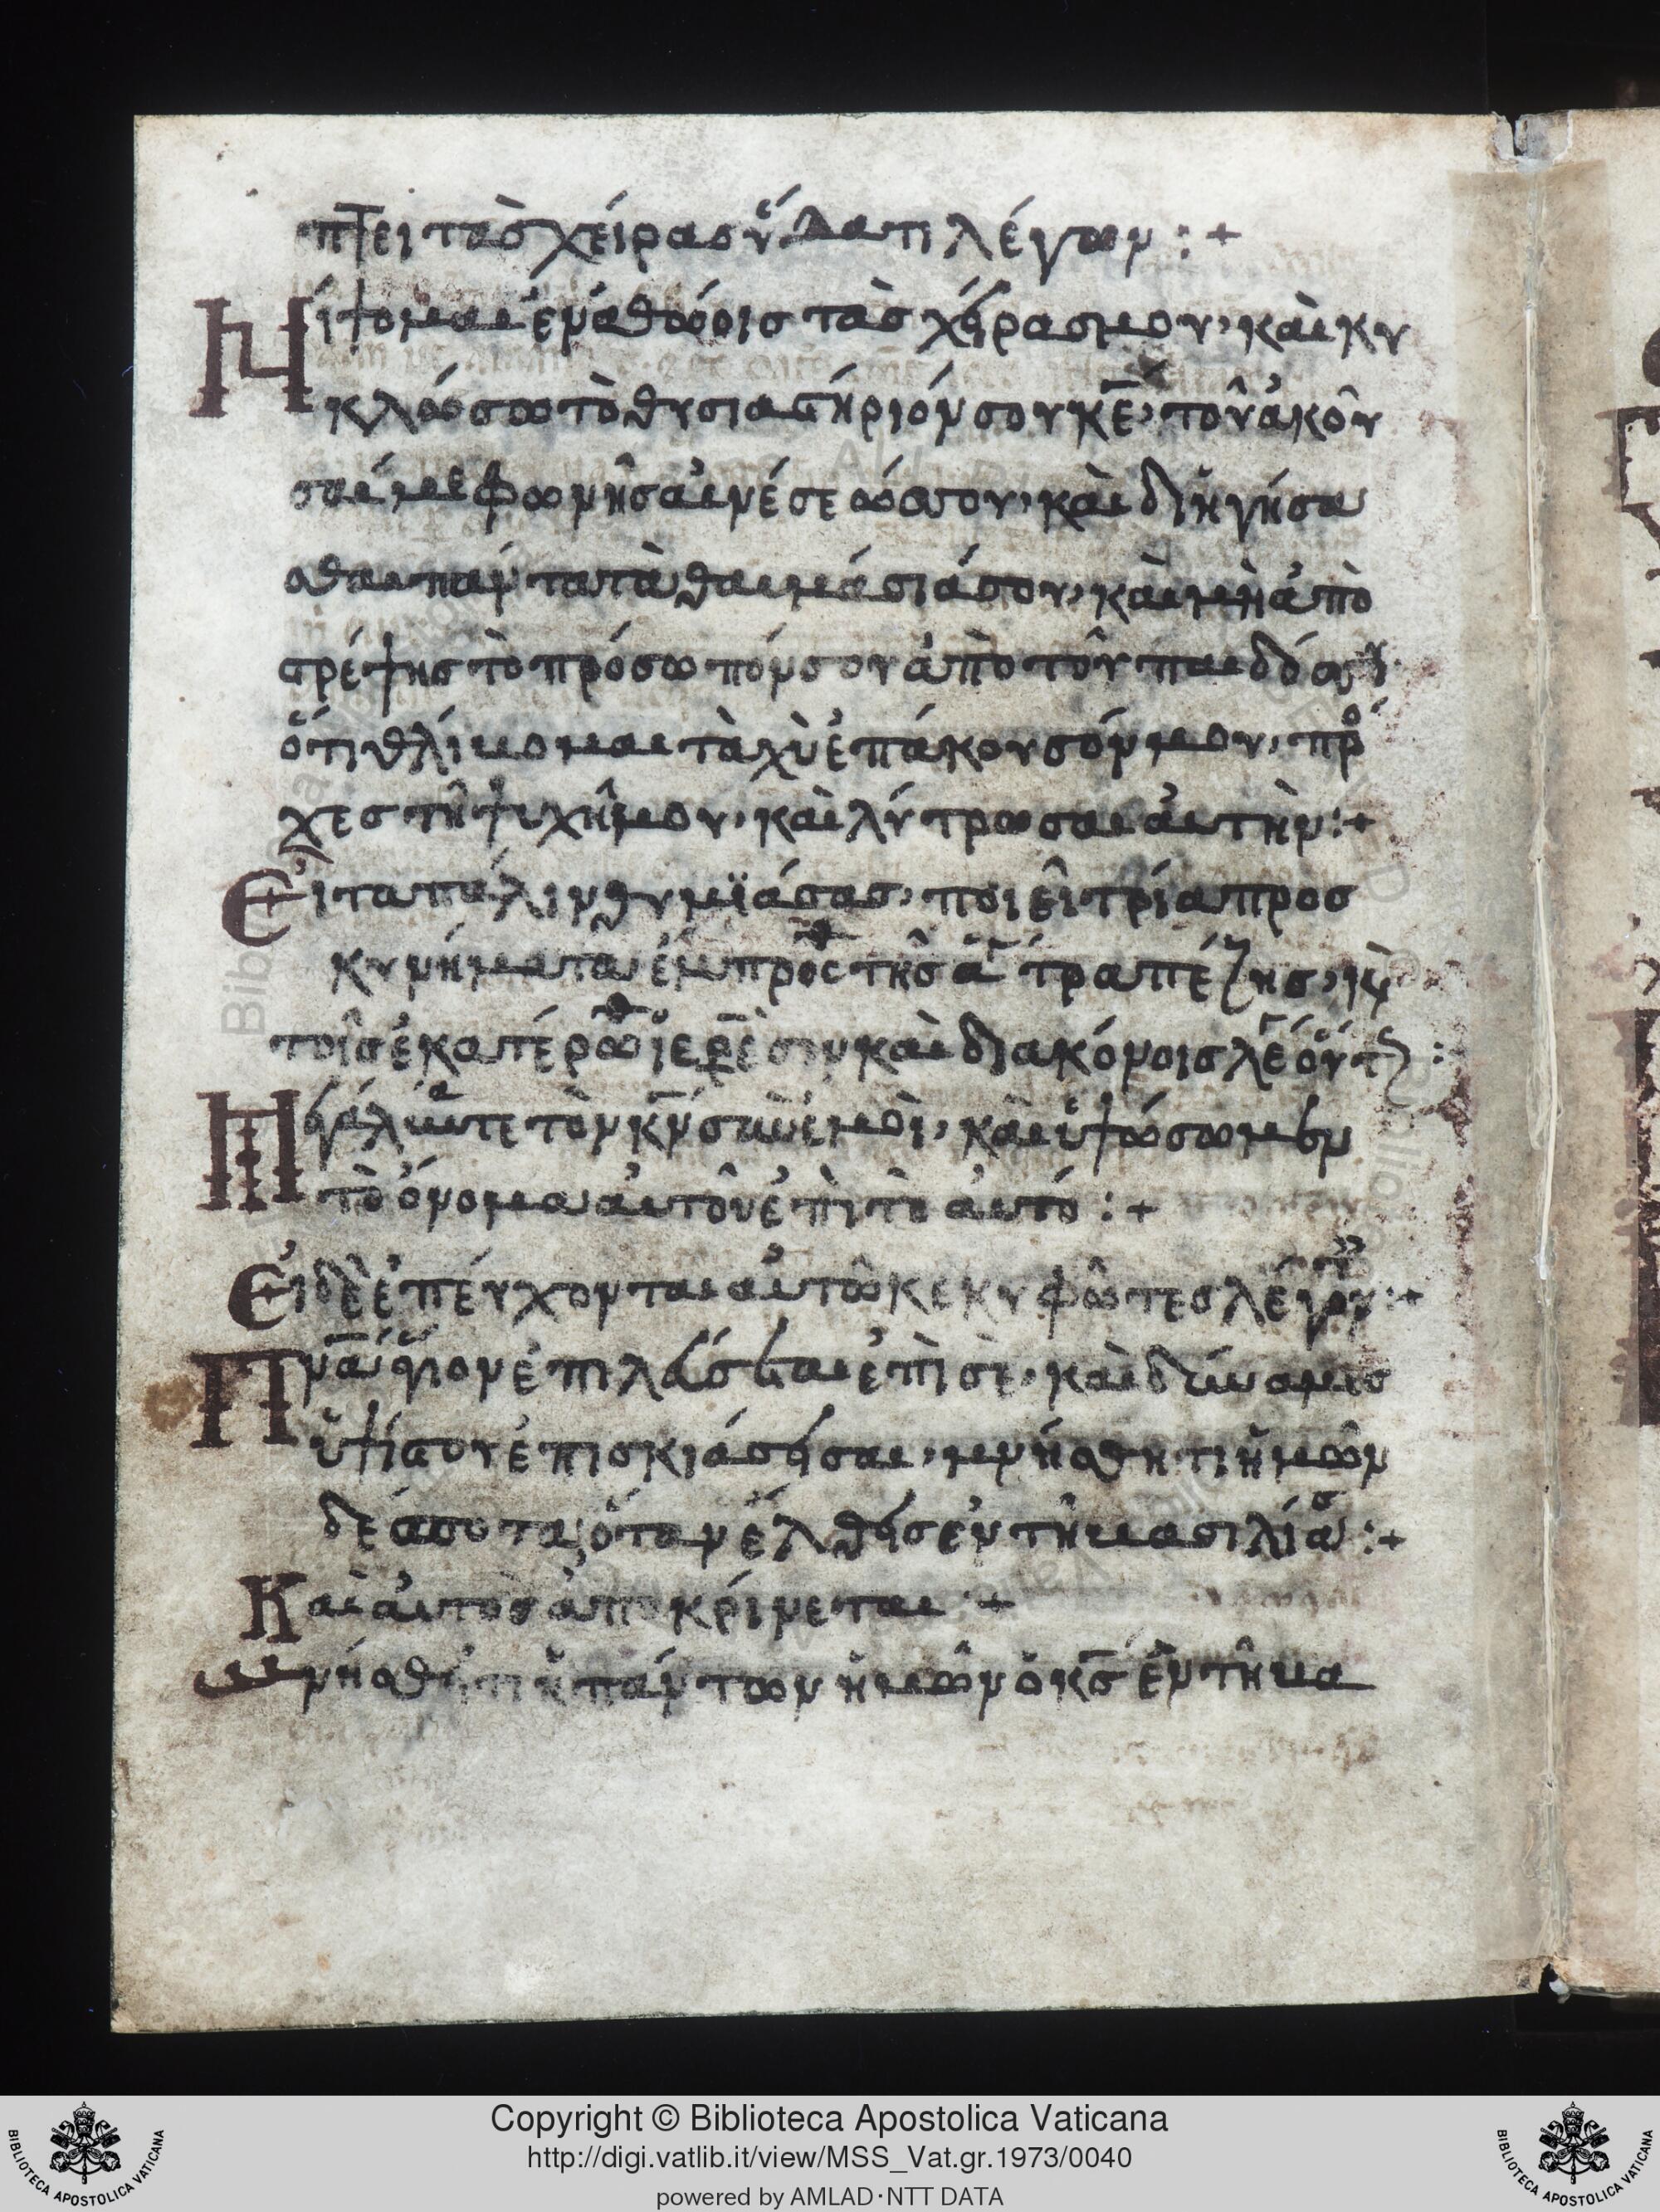 πτει τὰς χείρας ὕδατι λέγων :+
Νίψομαι ἐν ἀθώοις τὰς χείρας μου, καὶ κυ
κλώσω τὸ θυσιαστήριόν σου κ̅ε̅, τοῦ ἀκοῦ
σαί με φωνῆς αἰνέσεώς σου, καὶ διηγήσα
σθαι πάντα τὰ θαυμάσιά σου, καὶ μὴ ἀπο
στρέψης τὸ πρόσωπόν σου ἀπὸ τοῦ παιδός σου
ὅτι θλίβομαι ταχὺ ἐπάκουσόν μου, πρό
χες τῆ ψυχῆ μου, καὶ λύτρωσαι αὐτὴν :+
Εἶτα πάλιν θυμϊάσας, ποιεῖ τρία προσ
κυνήματα ἔμπροσ τῆς ἁ τραπέζης, κ
τοῖς ἑκατέρω ἱερεῦσιν καὶ διακόνοις λέ οὕτ :
Μεγαλύνατε τὸν κ̅ν̅ σὺν ἐμοὶ, καὶ ὑψώσωμεν
τὸ ὄνομα αὐτοῦ ἐπὶ τὸ αὐτό :+
Εἰ δὲ ἐπεύχονται αὐτῶ κεκυφῶτες λέγον :+
Π̅ν̅α̅ ἅγιον ἐπιλεύσεται ἐπὶ σὲ, καὶ δύναμις
ὑψίσου ἐπισκιάσει σαι, μνήσθητι ἡμῶν
δέσσοτα, ὅταν ἔλθης ἐν τῆ βασιλίασ :+
Καὶ αὐτὸς ἀποκρίνεται :+
Μνήσθητι πάντων ἡμῶν ὁ κ̅ς̅ ἐν τῆ βα
Copyright © Biblioteca Apostolica Vaticana
http://digi.vatlib.it/view/MSS_Vat.gr.1973/0040
powered by AMLAD·NTT DATA
BIBLIOTECA APOSTOLICA VATICANA
BIBLIOTECA APOSTOLICA VATICANA